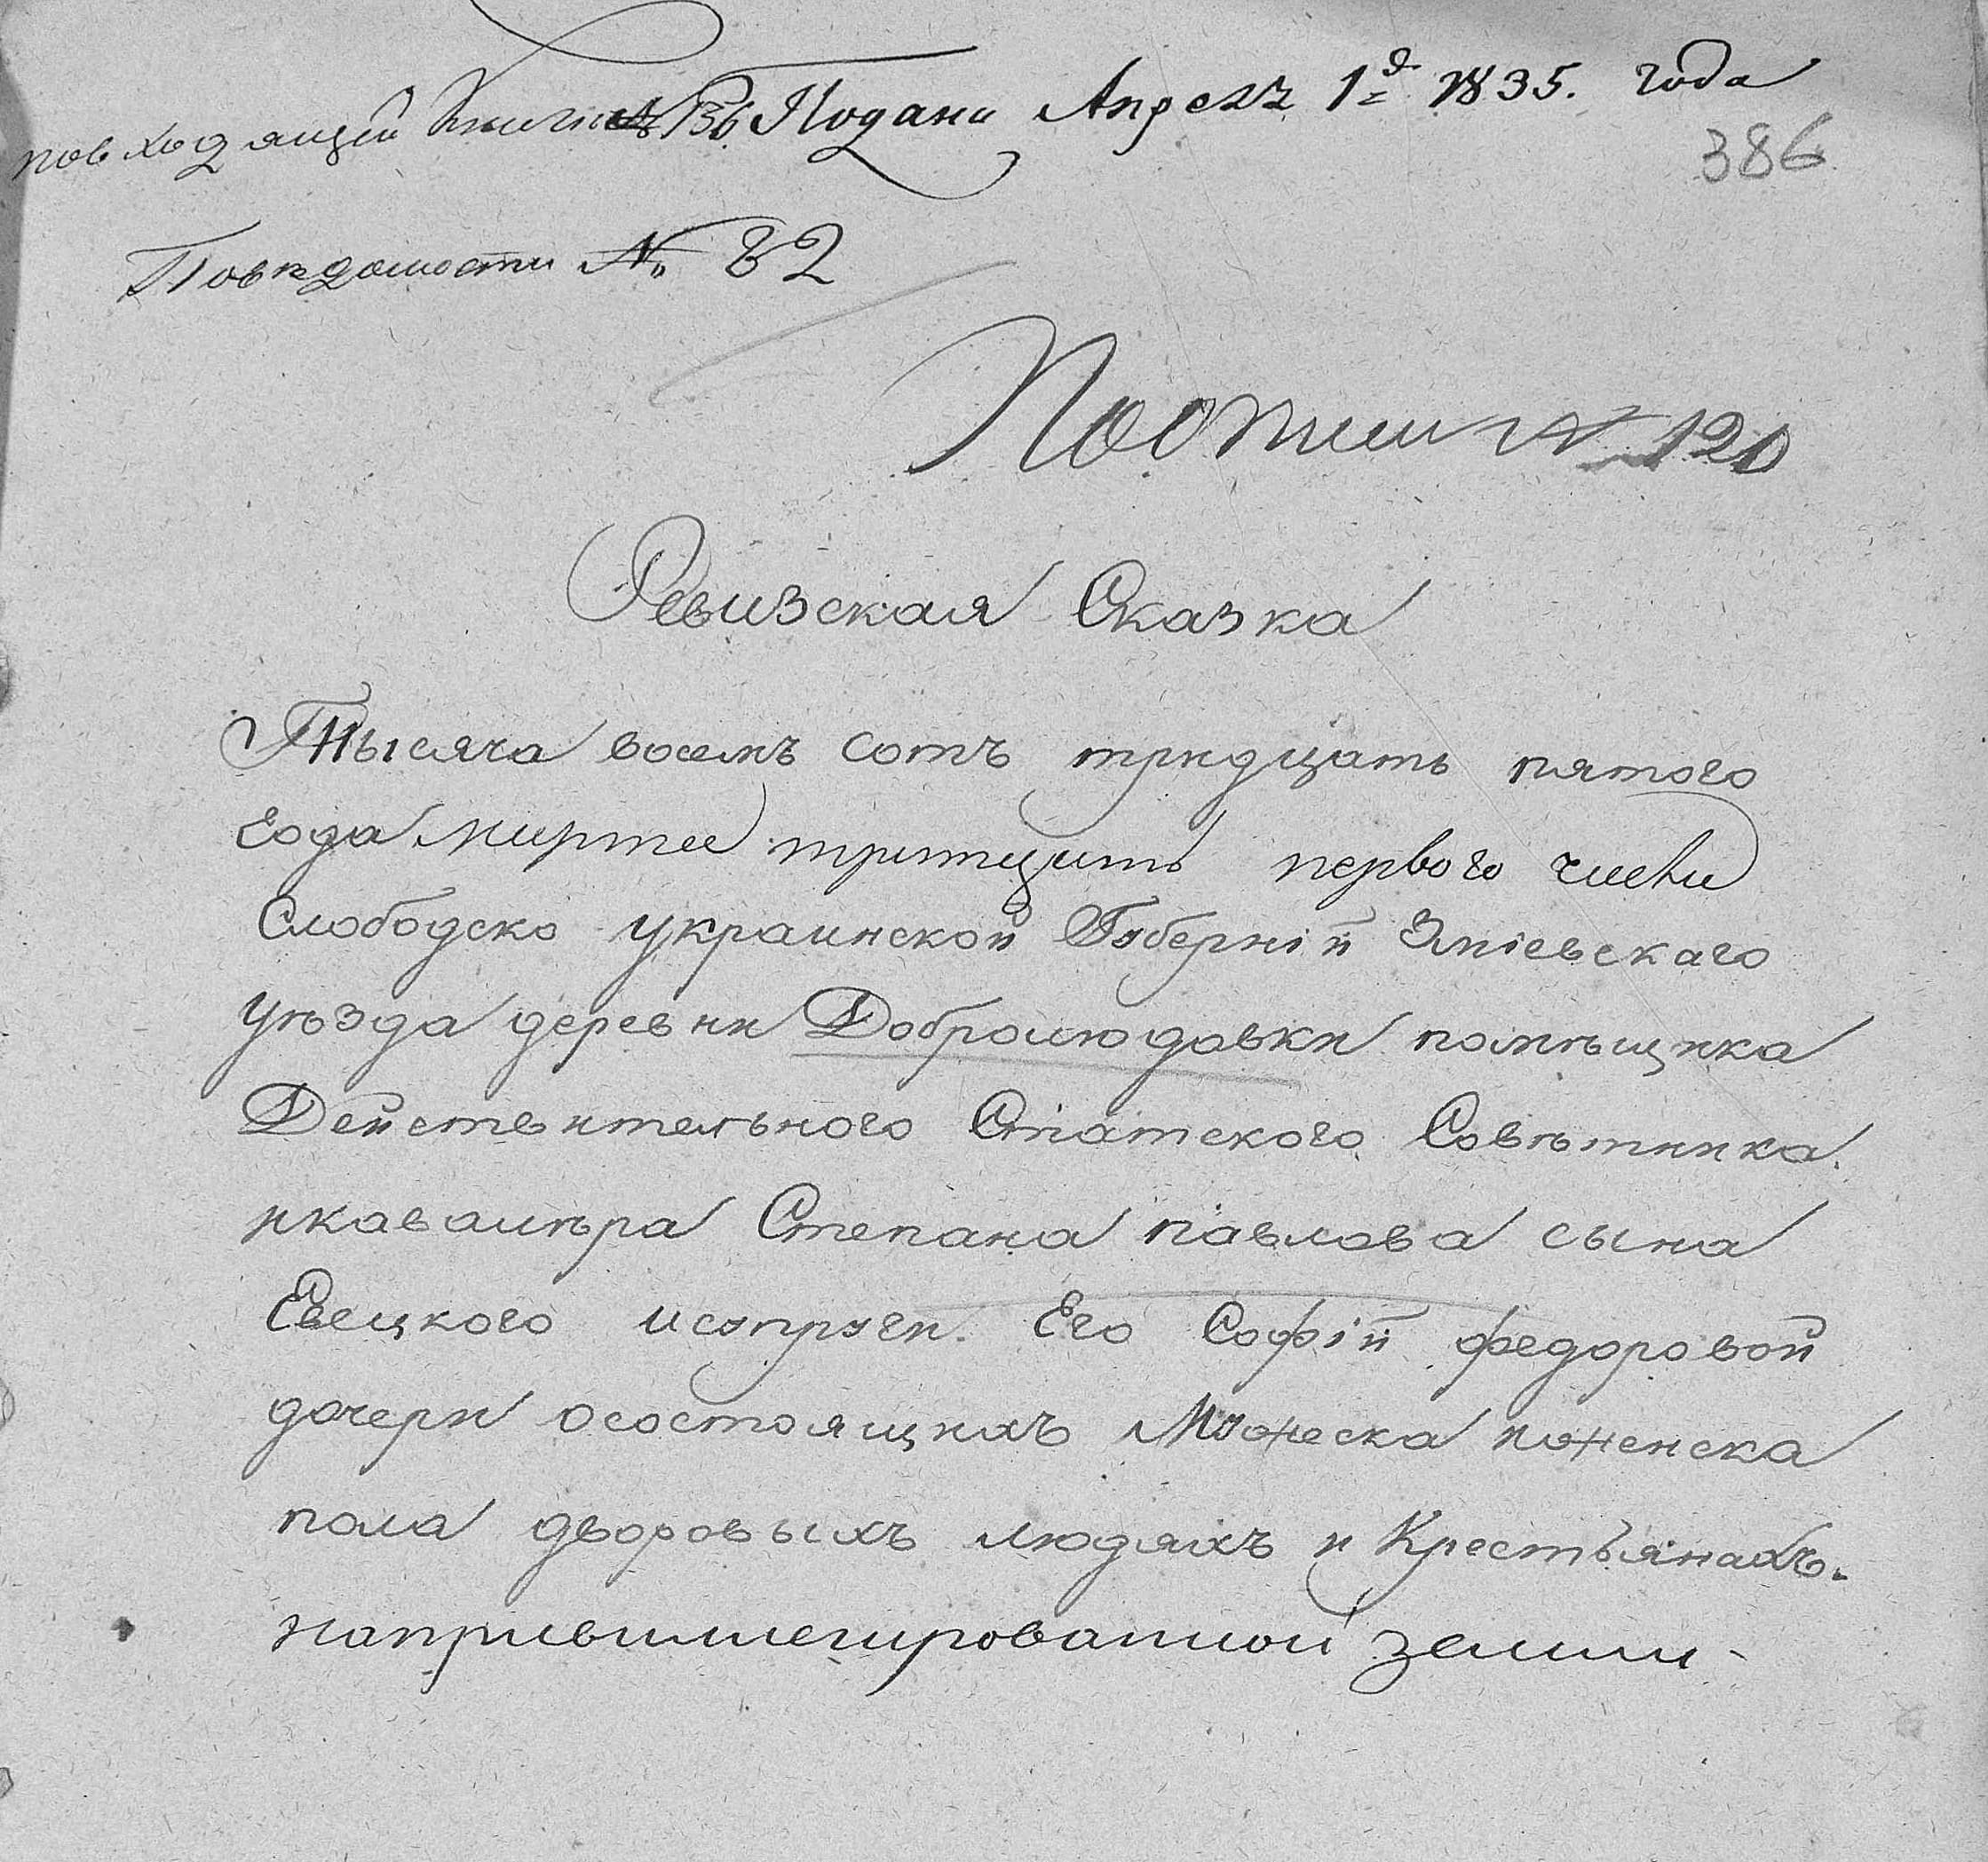 повходящей Книги № 136 Подана Апреля 1д 1835. года
386
Поведомости № 82
Поописи № 120
Ревизская Сказка
Тысяча восемъ сотъ тридцать пятого
Года Марта тритцать первого числа
Слободско украинской Губерніи Зміевскаго
уѣзда деревни Добролюдовки помѣщика
Действительного Статского Совѣтника
икавалѣра Степана павлова сына
Евецкого исупруги Его Софіи федоровой
дочери осостоящихъ Мужеска иженска
пола дворовыхъ людяхъ и Крестьянахъ.
напривиллегированной земли -